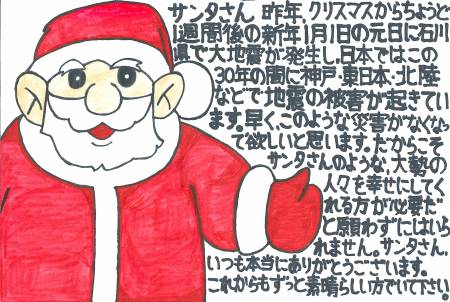 サンタさん 昨年、クリスマスからちょうど
1週間後の新年1月1日の元日に石川
県で大地震が発生し、日本ではこの
30年の間に神戸・東日本・北陸
などで地震の被害が起きてい
ます。早く、このような災害がなくなっ
て欲しいと思います。だからこそ
サンタさんのような、大勢の
人々を幸せにしてく
れる方が必要だ
と願わずにはいら
れません。サンタさん、
いつも本当にありがとうございます。
これからもずっと素晴らしい方でいて下さい。